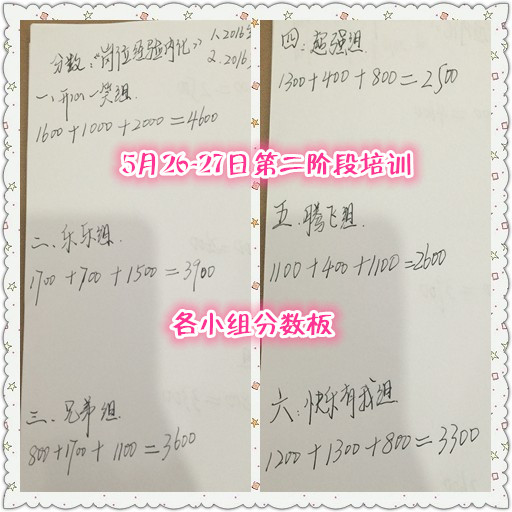 分数:“岗位经验内化” 1.2016
2.2016
一、开心一笑组
1600+1000+2000=4600
二、乐乐组.
1700+700+1500=3900
三、兄弟组
800+1700+1100=3600
四:超强组
1300+400+800=2500
五.腾飞组.
1100+400+1100=2600
六:快乐有我组
1200+1300+800=3300
5月26-27日第二阶段培训
各小组分数板